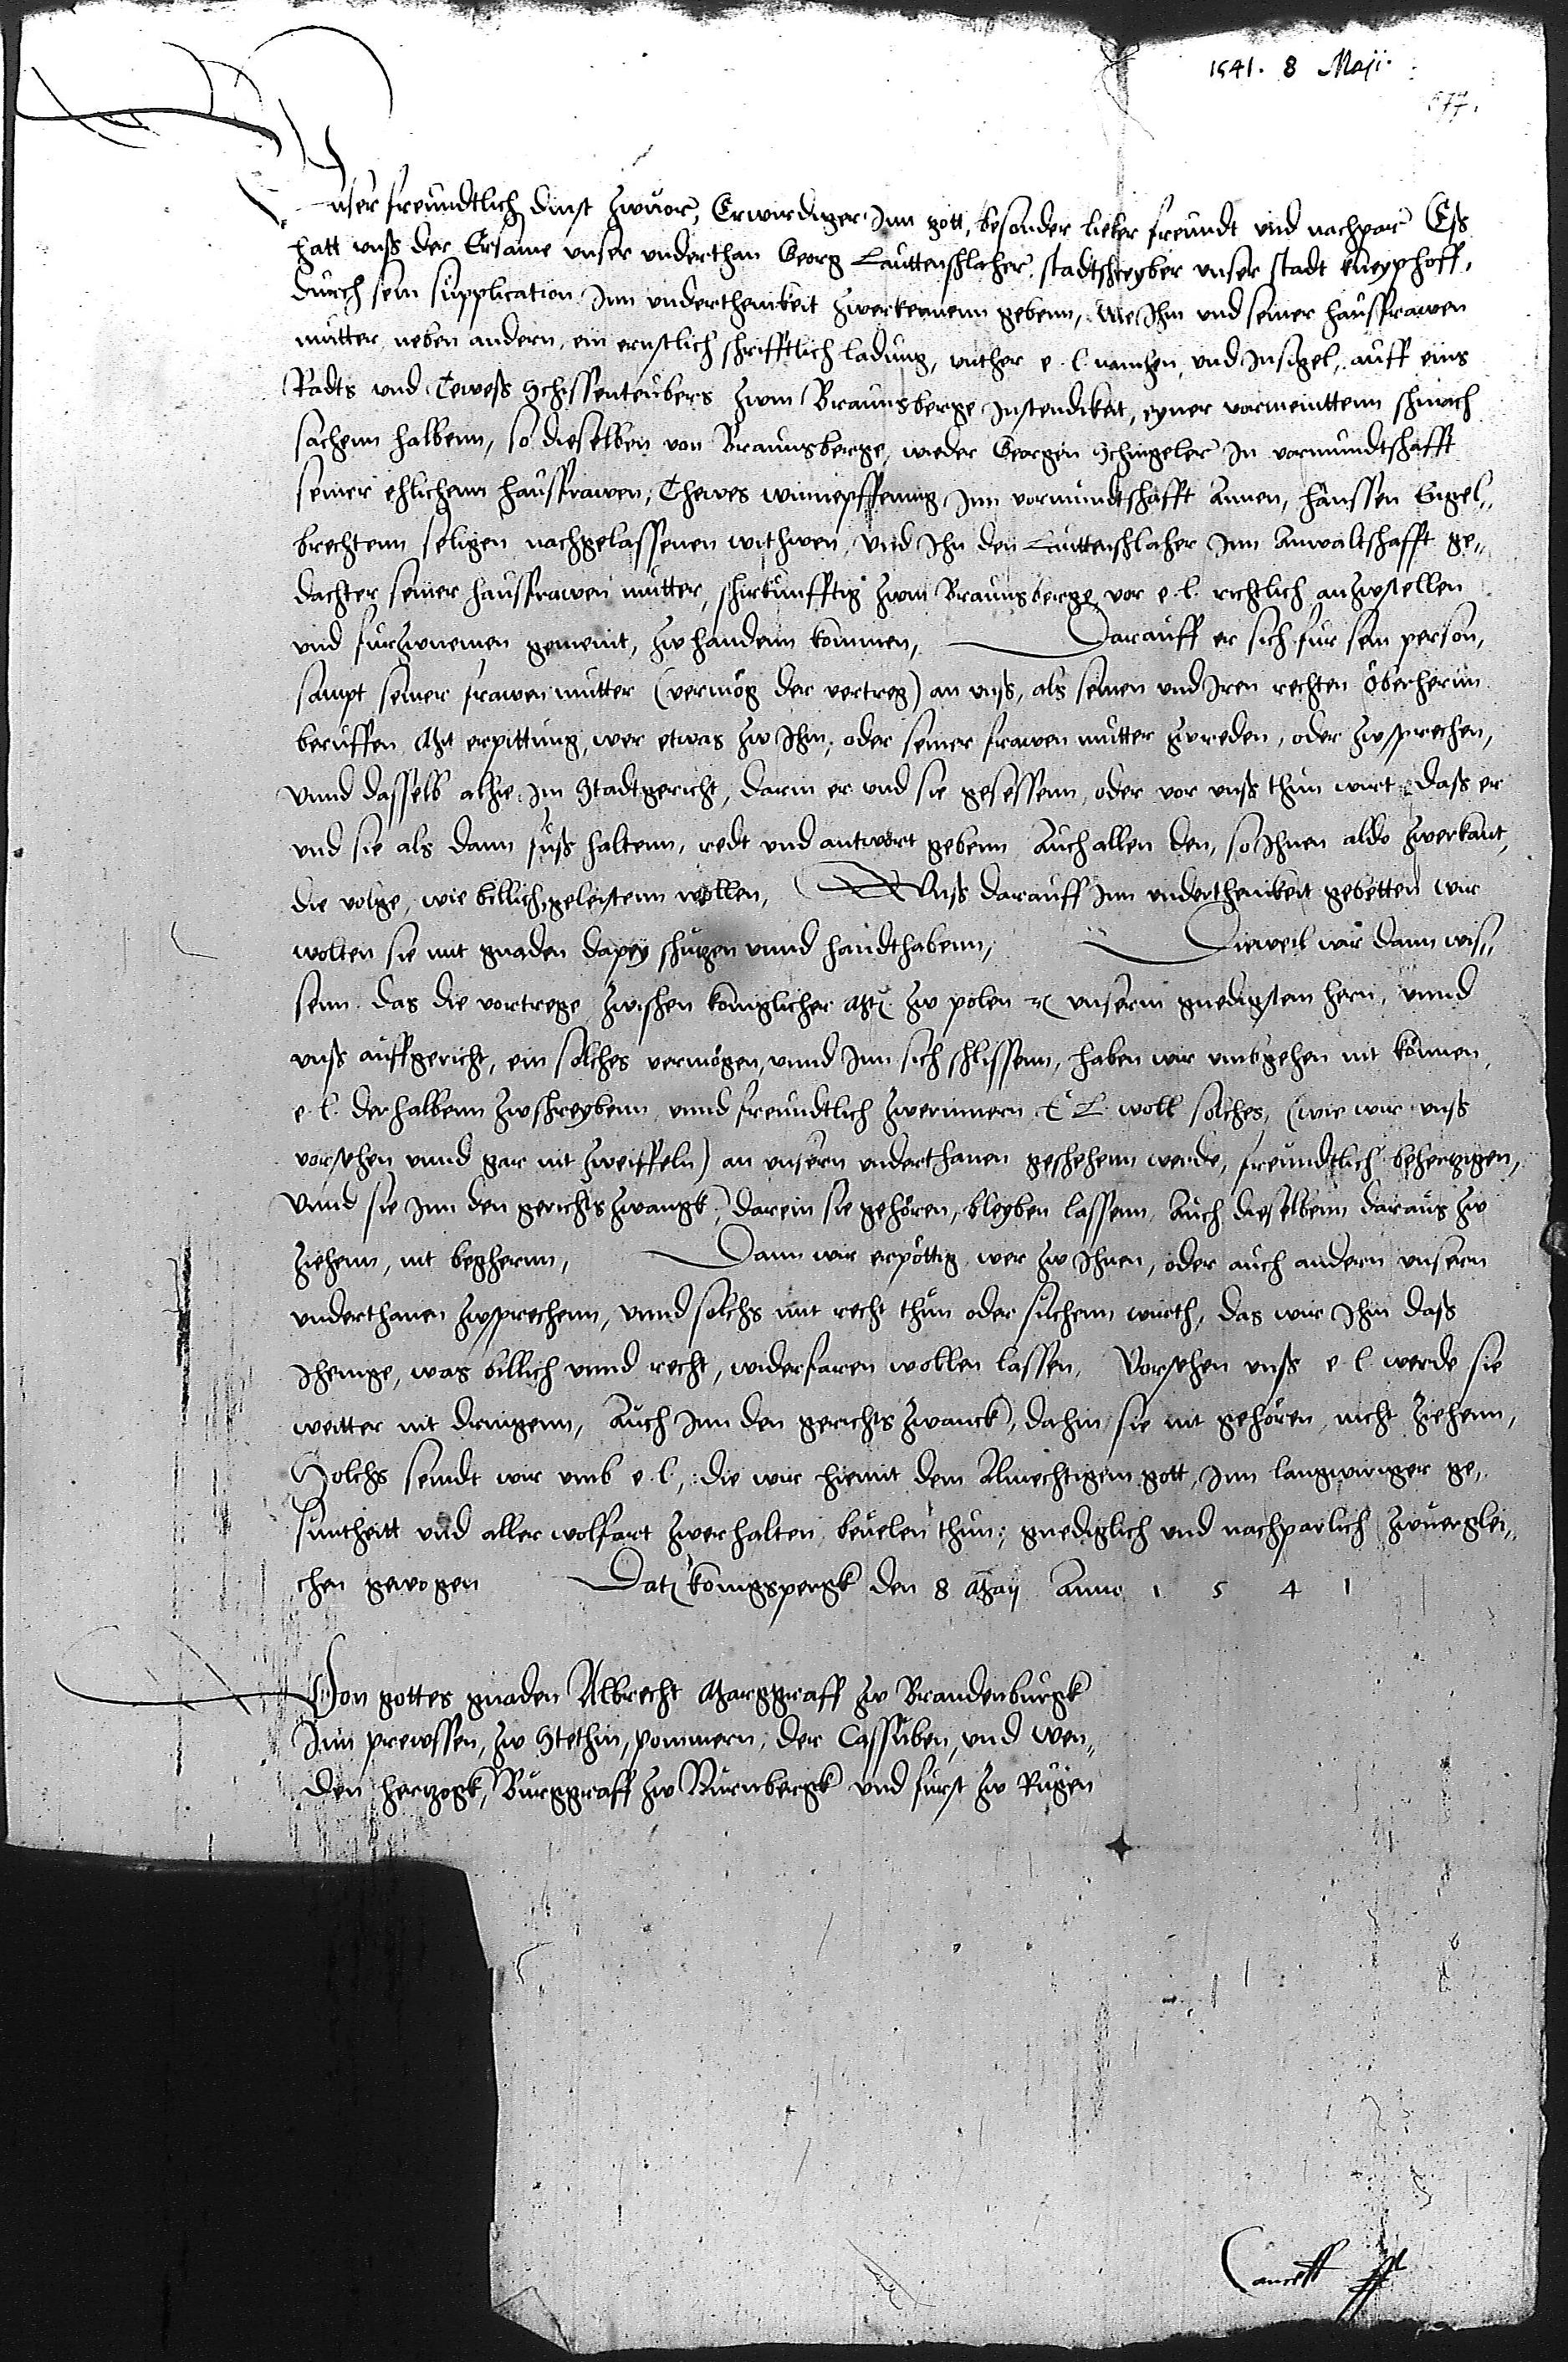 1541. 8 Maji.
577.
Unser freundtlich dinst zwuor, Erwirdiger Inn gott, besonder lieber freundt und nachpar Eß
hatt unß der Ersame unser underthan Georg Lauttenschlacher, stadtschreyber unser stadt kneyphoff,
durch sein supplication Inn underthenikeit zwerkennenn gebenn, Wie Ihm und seiner hausfrawen
mutter, neben andern, ein ernstlich schrifftlich ladung, unther e. l. namhen, und Insigel, auff eins
Radts und Tewess Schissenteubers zwm Braunsberge Instendikeit, eyner vormeinttenn schmach
sachenn halbenn, so dieselben von Braunsberge, wieder Georgen Schingeler In vormundtschafft
seiner ehlichenn hausfrawen, Thewes winnepffennig Inn vormundtschafft Annen, hanssen Engel„
brechtenn seligen nachgelassenen withwen, und Ihn den Lauttenschlacher Inn Anwaltschafft ge„
dachter seiner hausfrawen mutter, schirkunfftig zwm Braunsberge, vor e. l. richtlich anzwstellen
und furzwnemen gemeint, zw handenn kommen, Darauff er sich fur sein person,
sampt seiner frawen mutter (vermög der vertreg) an unß, als seinen und Iren rechten öberherrn
beruffen Mit erpittung, wer etwas zw Ihm, oder seiner frawen mutter zureden, oder zwsprechen,
Unnd dasselb alhie Im Stadtgericht, darin er und sie gesessenn, oder vor unß thun wirt, daß er
und sie als dann fuß haltenn, redt und antwort gebenn Auch allen den, so Ihnen aldo zwerkant,
die volge, wie billich, geleistenn wollen, Unß darauff Inn underthenikeit gebetten wir
wolten sie mit gnaden dapey schutzen unnd handthabenn, Dieweil wir dann wis„
senn das die vortrege zwischen königlicher Mt. zw polen ꝛc unserm gnedigstenn hern, unnd
unß auffgericht, ein solches vermögen, unnd Inn sich schlissenn, haben wir umbgehen nit können,
e. l. derhalbenn zwschreybenn unnd freundtlich zwerinnern E L woll solches, (wie wir unß
vorsehen unnd gar nit zweiffeln) an unsern underthanen geschehenn werde, freundtlich behertzigen,
Unnd sie Inn den gerichts zwangk, darein sie gehören, bleyben lassenn, Auch dieselbenn daraus zw
ziehenn, nit begherenn, Dann wir erpöttig wer zw Ihnen, oder auch andern unsern
underthanen zwsprechenn, unnd solchs mit recht thun oder suchenn wurth, das wir Ihm daß
Ihenige, was billich unnd recht, widerfaren wollen lassen, Vorsehen unß e l werde sie
weitter nit dringenn, Auch Inn den gerichts zwanck, dahin sie nit gehören nicht ziehenn,
Solchs seindt wir umb e. l., die wir hiemit dem Almechtigenn gott, Inn langwiriger ge„
suntheitt und aller wolfart zwerhalten, beuelen thun, gnediglich und nachparlich zwuerglei„
chen gewogen Datz königspergk den 8 Maij Anno 1 5 4 1
Von gottes gnaden Albrecht Marggraff zw Brandenburgk
Inn prewssen, zw Stethin, pommern, der Cassuben, und wen„
den hertzogk, Burggraff zw Nurnbergk und furst zw Rugen